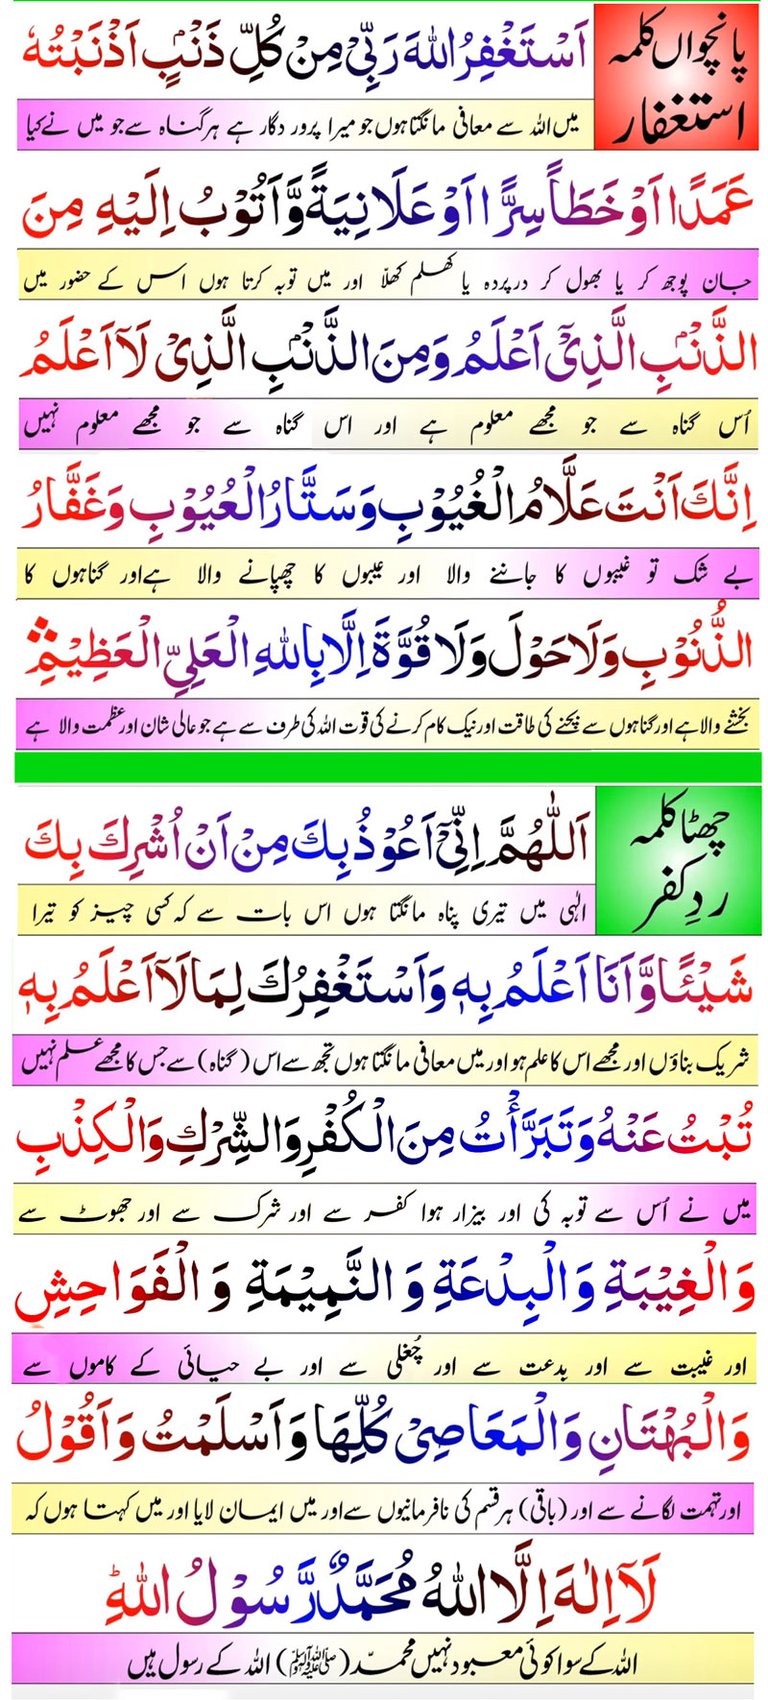 پانچواں کلمہ
استغفار
اَسْتَغْفِرُ اللهَ رَبِّیْ مِنْ كُلِّ ذَنْۢبٍ اَذْنَبْتُهٗ
میں اللہ سے معافی مانگتا ہوں جو میرا پرور دگار ہے ہر گناہ سے جو میں نے کیا
عَمَدًا اَوْ خَطَأً سِرًّا اَوْ عَلَانِيَةً وَّاَتُوْبُ اِلَيْهِ مِنَ
جان پوجھ کر یا بھول کر درپردہ یا کھلم کھلّا اور میں توبہ کرتا ہوں اس کے حضور میں
الذَّنْۢبِ الَّذِیْٓ اَعْلَمُ وَمِنَ الذَّنْۢبِ الَّذِیْ لَآ اَعْلَمُ
اُس گناہ سے جو مجھے معلوم ہے اور اس گناہ سے جو مجھے معلوم نہیں
اِنَّكَ اَنْتَ عَلَّامُ الْغُيُوْبِ وَسَتَّارُ الْعُيُوْبِ وَغَفَّارُ
بے شک تو غیبوں کا جاننے والا اور عیبوں کا چھپانے والا ہے اور گناہوں کا
الذُّنُوْبِ وَلَا حَوْلَ وَلَا قُوَّةَ اِلَّا بِاللهِ الْعَلِیِّ الْعَظِيْمِ
بخشنے والا ہے اور گناہوں سے بچنے کی طاقت اور نیک کام کرنے کی قوت اللہ کی طرف سے ہے جو عالی شان اور عظمت والا ہے
چھٹا کلمہ
ردِ کفر
اَللّٰهُمَّ اِنِّیْٓ اَعُوْذُ بِكَ مِنْ اَنْ اُشْرِكَ بِكَ
الٰہی میں تیری پناہ مانگتا ہوں اس بات سے کہ کسی چیز کو تیرا
شَيْئًا وَّاَنَا اَعْلَمُ بِهٖ وَاَسْتَغْفِرُكَ لِمَا لَآ اَعْلَمُ بِهٖ
شریک بناؤں اور مجھے اس کا علم ہو اور میں معافی مانگتا ہوں تجھ سے اس (گناہ) سے جس کا مجھے علم نہیں
تُبْتُ عَنْهُ وَتَبَرَّأْتُ مِنَ الْكُفْرِ وَالشِّرْكِ وَالْكِذْبِ
میں نے اُس سے توبہ کی اور بیزار ہوا کفر سے اور شرک سے اور جھوٹ سے
وَالْغِيْبَةِ وَالْبِدْعَةِ وَالنَّمِيْمَةِ وَالْفَوَاحِشِ
اور غیبت سے اور بدعت سے اور چُغلی سے اور بے حیائی کے کاموں سے
وَالْبُهْتَانِ وَالْمَعَاصِیْ كُلِّهَا وَاَسْلَمْتُ وَاَقُوْلُ
اور تہمت لگانے سے اور (باقی) ہر قسم کی نافرمانیوں سے اور میں ایمان لایا اور میں کہتا ہوں کہ
لَآ اِلٰهَ اِلَّا اللهُ مُحَمَّدٌ رَّسُوْلُ اللهِ
اللہ کے سوا کوئی معبود نہیں محمد (ﷺ) اللہ کے رسول ہیں